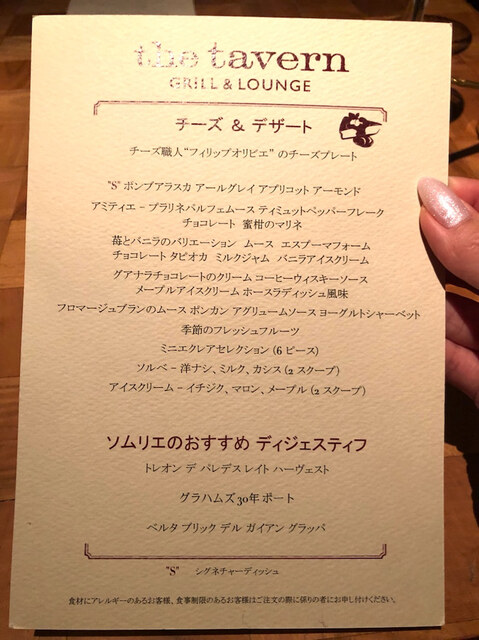 the tavern
GRILL & LOUNGE
チーズ & デザート
チーズ職人“フィリップオリビエ” のチーズプレート
"S" ボンブアラスカ アールグレイ アプリコット アーモンド
アミティエ – プラリネパルフェムース ティミュットペッパーフレーク
チョコレート 蜜柑のマリネ
苺とバニラのバリエーション ムース エスプーマフォーム
チョコレート タピオカ ミルクジャム バニラアイスクリーム
グアナラチョコレートのクリーム コーヒーウィスキーソース
メープルアイスクリーム ホースラディッシュ風味
フロマージュブランのムース ポンカン アグリュームソース ヨーグルトシャーベット
季節のフレッシュフルーツ
ミニエクレアセレクション (6 ピース)
ソルベ – 洋ナシ、ミルク、カシス (2 スクープ)
アイスクリーム – イチジク、マロン、メープル (2 スクープ)
ソムリエのおすすめ ディジェスティフ
トレオン デ パレデス レイト ハーヴェスト
グラハムズ 30年 ポート
ベルタ ブリック デル ガイアン グラッパ
"S" シグネチャーディッシュ
食材にアレルギーのあるお客様、食事制限のあるお客様はご注文の際に係りの者にお申し付けください。